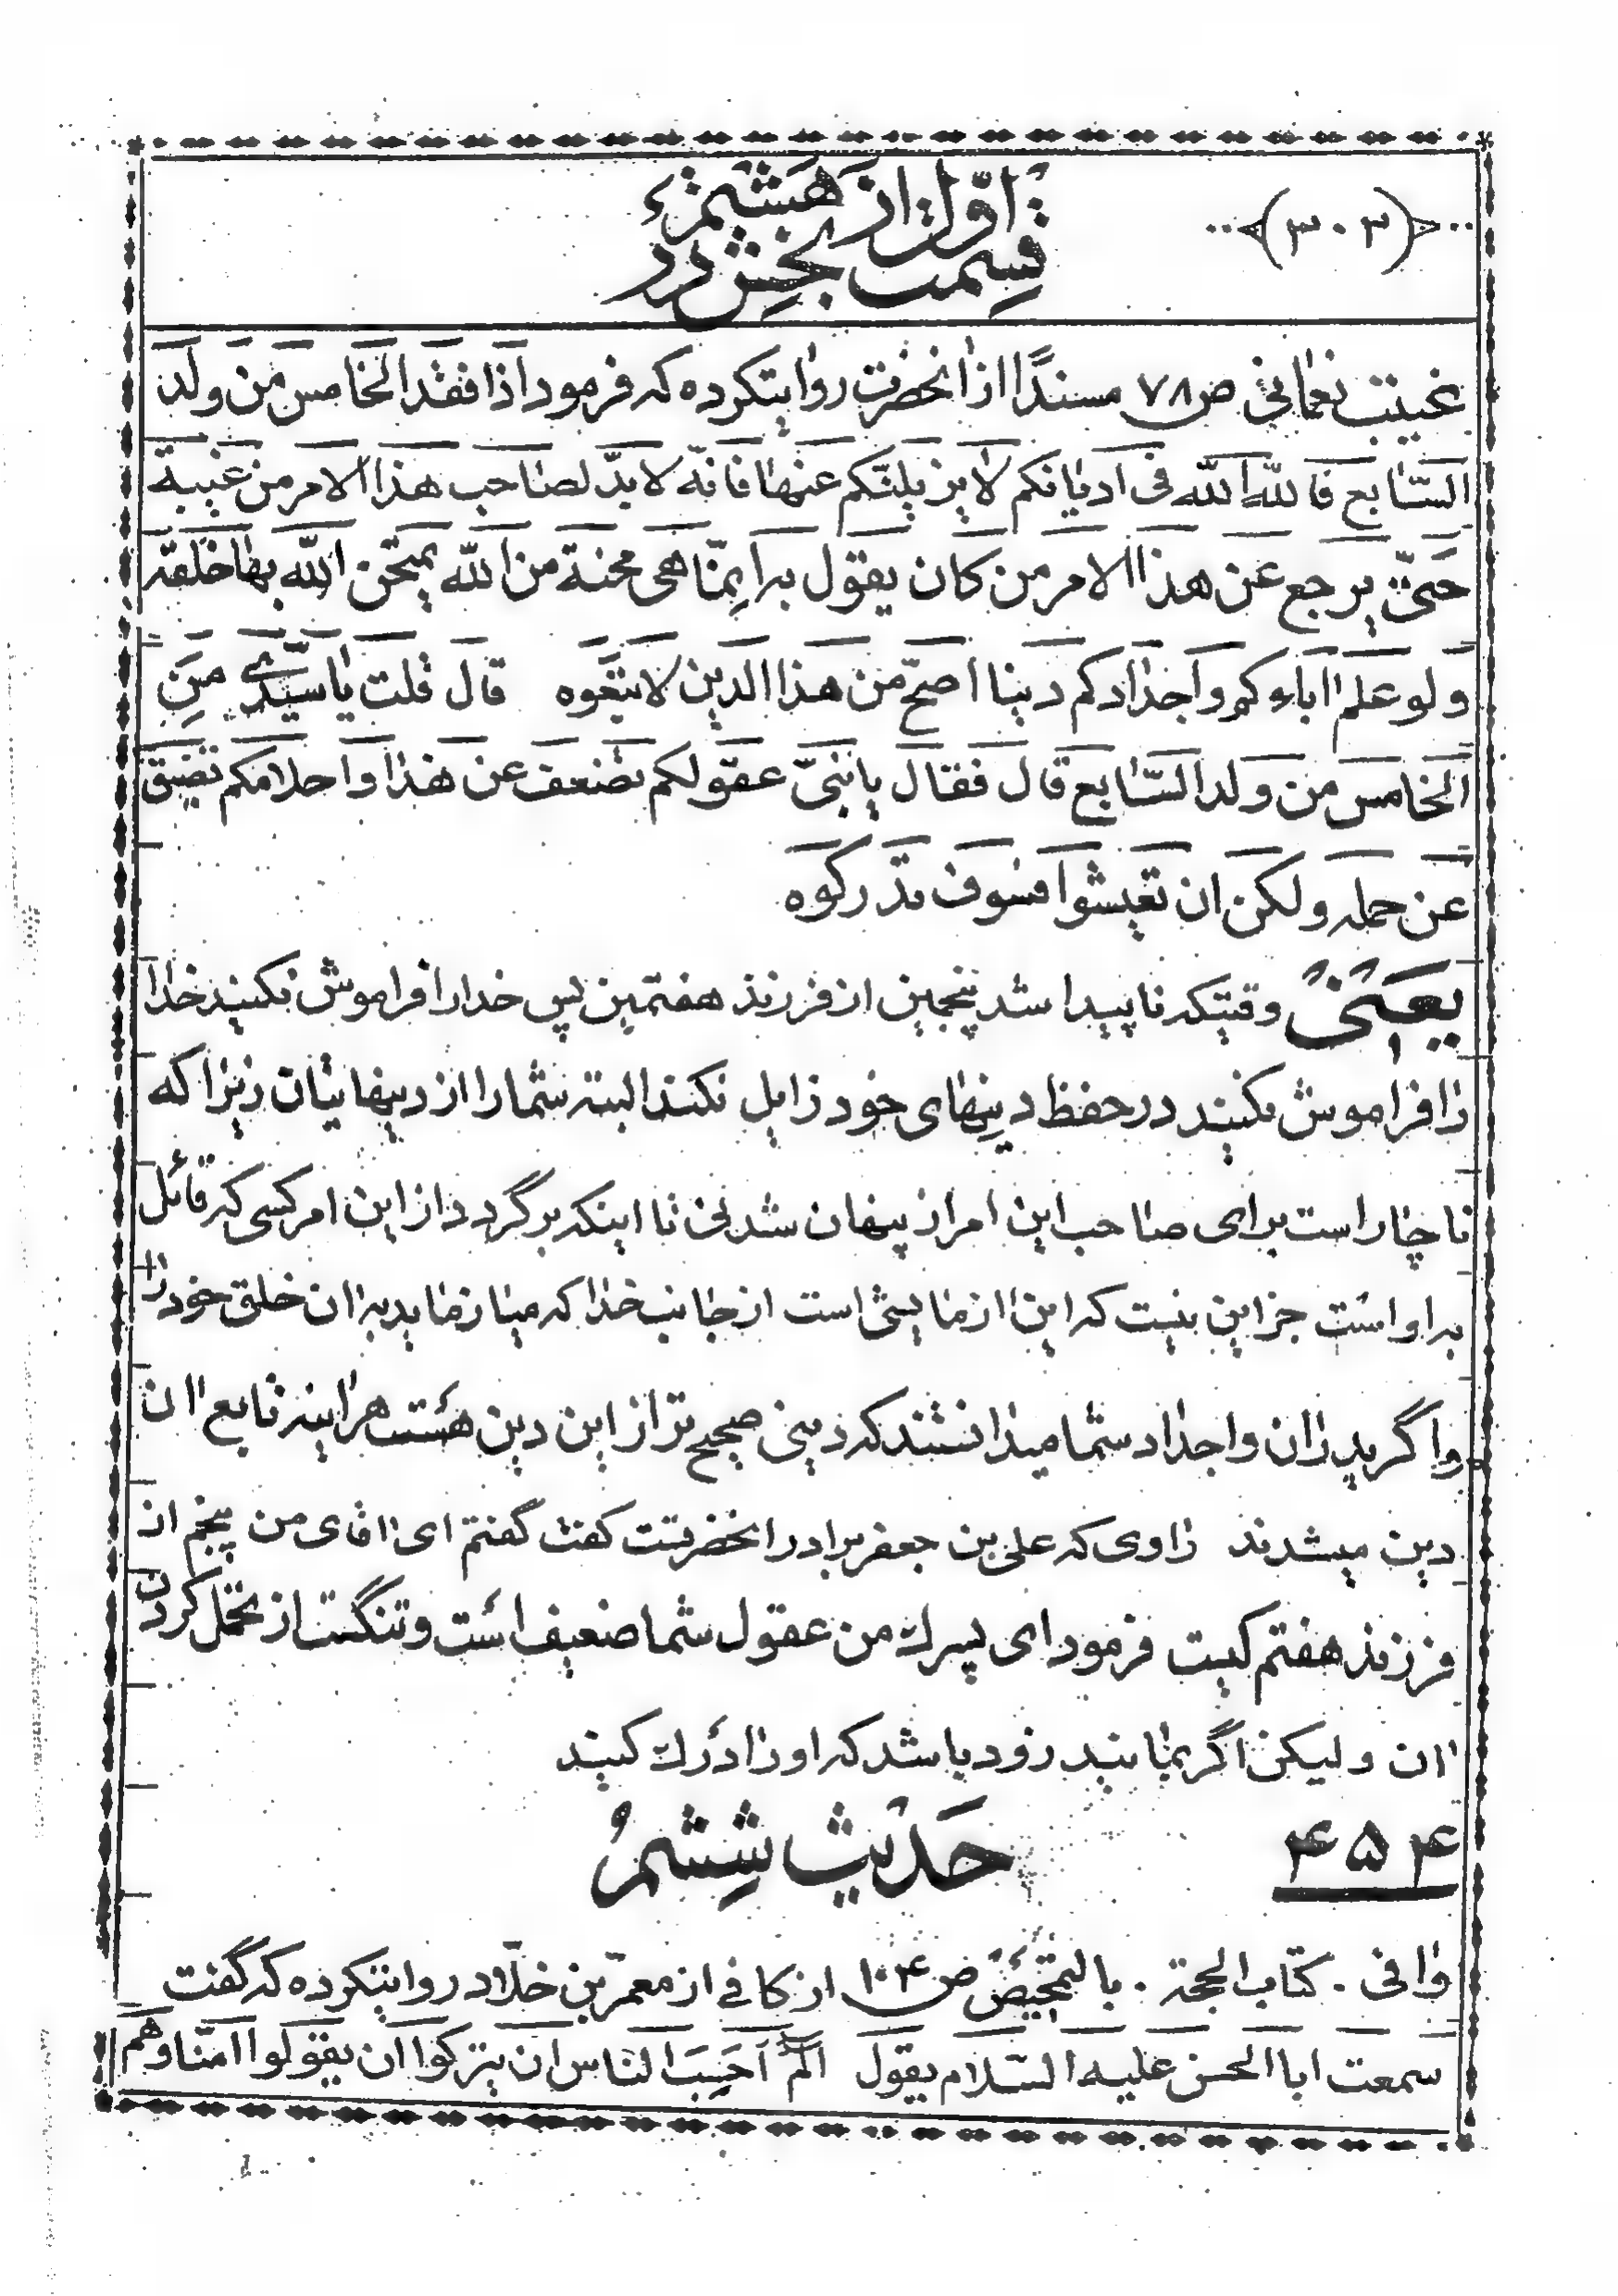 (۳۰۳)
قسمت اوّل از بخش هشتم در
غیبت نعمانی ص ۷۸ مسنداً از آنحضرت روایتکرده که فرمود اذا فقد الخامس من ولد
السّابع فاللّه اللّه فی ادیانکم لا یزیلنّکم عنها فانّه لا بدّ لصاحب هذا الامر من غیبة
حتّی یرجع عن هذا الامر من کان یقول به انّما هی محنة من اللّه یمتحن اللّه بها خلقه
ولو علم اباءکم واجدادکم دینا اصحّ من هذا الدین لاتبّعوه قال قلت یا سیّدی من
الخامس من ولد السّابع قال فقال یا بنیّ عقولکم تضعف عن هذا واحلامکم تضیق
عن حمله ولکن ان تعیشوا فسوف تدرکوه
یعنی وقتیکه ناپیدا شد پنجمین از فرزند هفتمین پس خدا را فراموش نکنید خدا
را فراموش نکنید در حفظ دینهای خود زایل نکند البته شما را از دینهایتان زیرا که
ناچار است برای صاحب این امر از پنهان شدنی تا اینکه برگردد از این امر کسی که قائل
به او است جز این نیست که این ازمایشی است از جانب خدا که میازماید به آن خلق خود را
و اگر پدران و اجداد شما میدانستند که دینی صحیح تر از این دین هست هراینه تابع آن
دین میشدند راوی که علی بن جعفر برادر انحضرتست گفت گفتم ای اقای من پنجم از
فرزند هفتم کیست فرمود ای پسرک من عقول شما ضعیف است و تنگست از تحمل کردن
آن ولیکن اگر بمانید زود باشد که او را درک کنید
۴۵۴ حدیث ششم
وافی . کتاب الحجة . باب التمحیص ص ۱۰۴ از کافی از معمّر بن خلّاد روایتکرده که گفت
سمعت ابا الحسن علیه السّلام یقول الم احسب الناس ان یترکوا ان یقولوا امنّا وهم